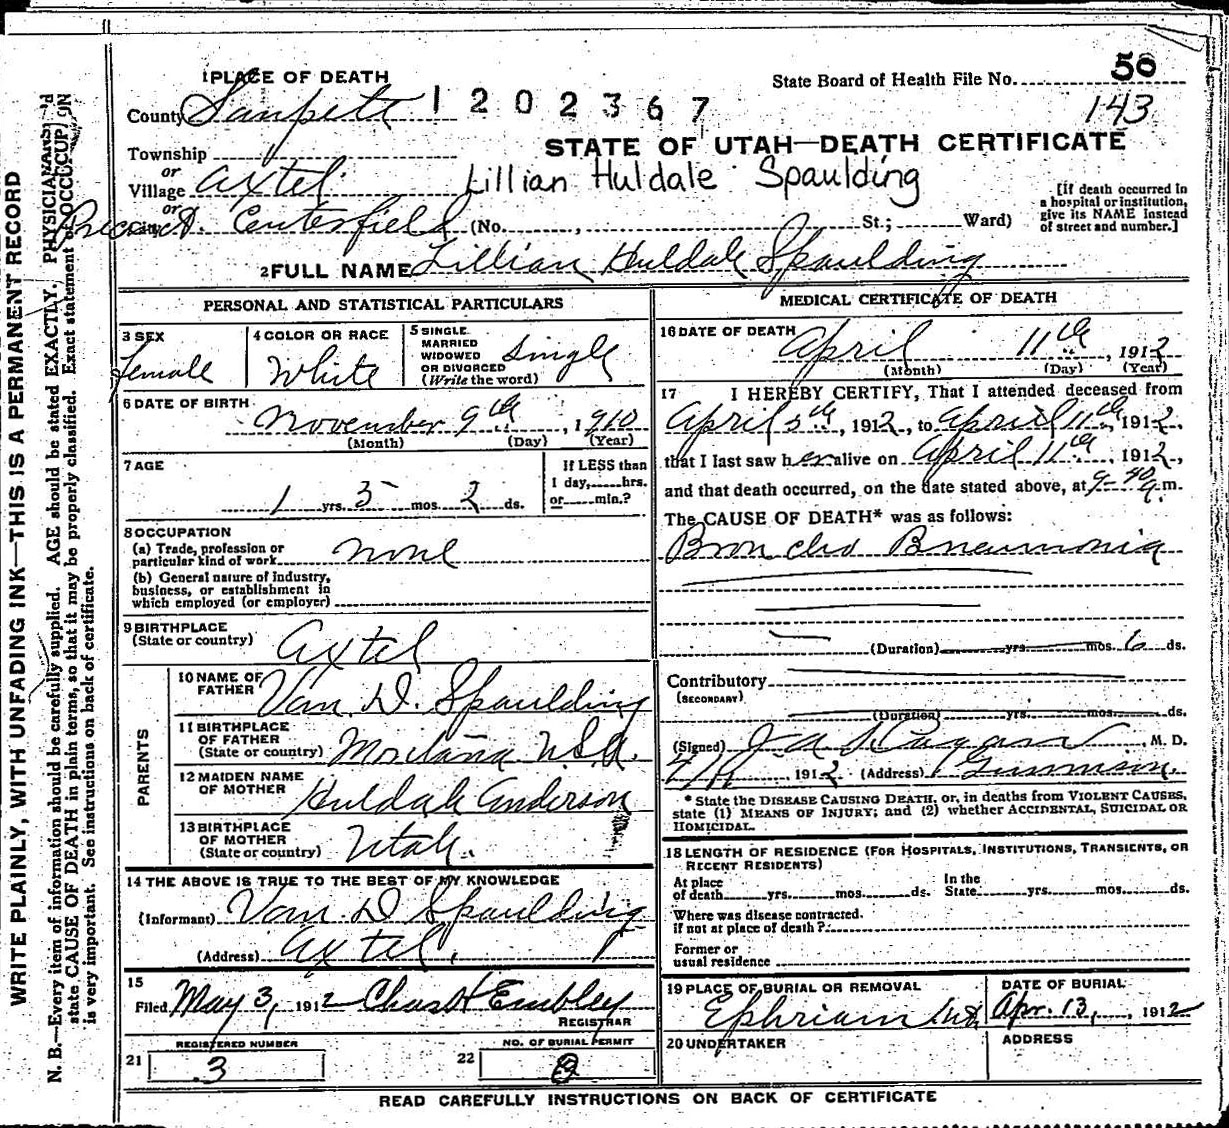 1 PLACE OF DEATH
State Board of Health File No. 50
County Sanpete 1202367
143
STATE OF UTAH—DEATH CERTIFICATE
Township
or
Village Axtel
Lillian Huldale Spaulding
or
Precinct. Centerfield (No. , St.; Ward)
[If death occurred in
a hospital or institution,
give its NAME instead
of street and number.]
2 FULL NAME Lillian Huldale Spaulding
PERSONAL AND STATISTICAL PARTICULARS
3 SEX
Female
4 COLOR OR RACE
White
5 SINGLE
MARRIED
WIDOWED
OR DIVORCED
(Write the word)
Single
6 DATE OF BIRTH
November 9th, 1910
(Month) (Day) (Year)
7 AGE
1 yrs. 5 mos. 2 ds.
If LESS than
1 day, hrs.
or min.?
8 OCCUPATION
(a) Trade, profession or
particular kind of work none
(b) General nature of industry,
business, or establishment in
which employed (or employer)
9 BIRTHPLACE
(State or country) Axtel
PARENTS
10 NAME OF
FATHER Van D. Spaulding
11 BIRTHPLACE
OF FATHER
(State or country) Montana U.S.A.
12 MAIDEN NAME
OF MOTHER Huldah Anderson
13 BIRTHPLACE
OF MOTHER
(State or country) Utah.
14 THE ABOVE IS TRUE TO THE BEST OF MY KNOWLEDGE
(Informant) Van D Spaulding
(Address) Axtel.
15
Filed May 3, 1912 Chas H Embley
REGISTRAR
REGISTERED NUMBER
21 3
NO. OF BURIAL PERMIT
22
MEDICAL CERTIFICATE OF DEATH
16 DATE OF DEATH
April 11th, 1912
(Month) (Day) (Year)
17 I HEREBY CERTIFY, That I attended deceased from
April 5th, 1912, to April 11th 1912.
that I last saw her alive on April 11th, 1912,
and that death occurred, on the date stated above, at 9-40 a.m.
The CAUSE OF DEATH* was as follows:
Broncho Pneumonia
(Duration) yrs. mos. 6 ds.
Contributory
(SECONDARY)
(Duration) yrs. mos. ds.
(Signed) M. D.
1912 (Address) Gunnison.
* State the DISEASE CAUSING DEATH, or, in deaths from VIOLENT CAUSES,
state (1) MEANS OF INJURY; and (2) whether ACCIDENTAL, SUICIDAL OR
HOMICIDAL.
18 LENGTH OF RESIDENCE (FOR HOSPITALS, INSTITUTIONS, TRANSIENTS, OR
RECENT RESIDENTS)
At place
of death yrs. mos. ds.
In the
State yrs. mos. ds.
Where was disease contracted.
if not at place of death?
Former or
usual residence
19 PLACE OF BURIAL OR REMOVAL
Ephriam Ut.
DATE OF BURIAL
Apr. 13, 1912
20 UNDERTAKER
ADDRESS
READ CAREFULLY INSTRUCTIONS ON BACK OF CERTIFICATE
WRITE PLAINLY, WITH UNFADING INK—THIS IS A PERMANENT RECORD
N. B.—Every item of information should be carefully supplied. AGE should be stated EXACTLY. PHYSICIANS
state CAUSE OF DEATH in plain terms, so that it may be properly classified. Exact statement of OCCUPATION
is very important. See instructions on back of certificate.